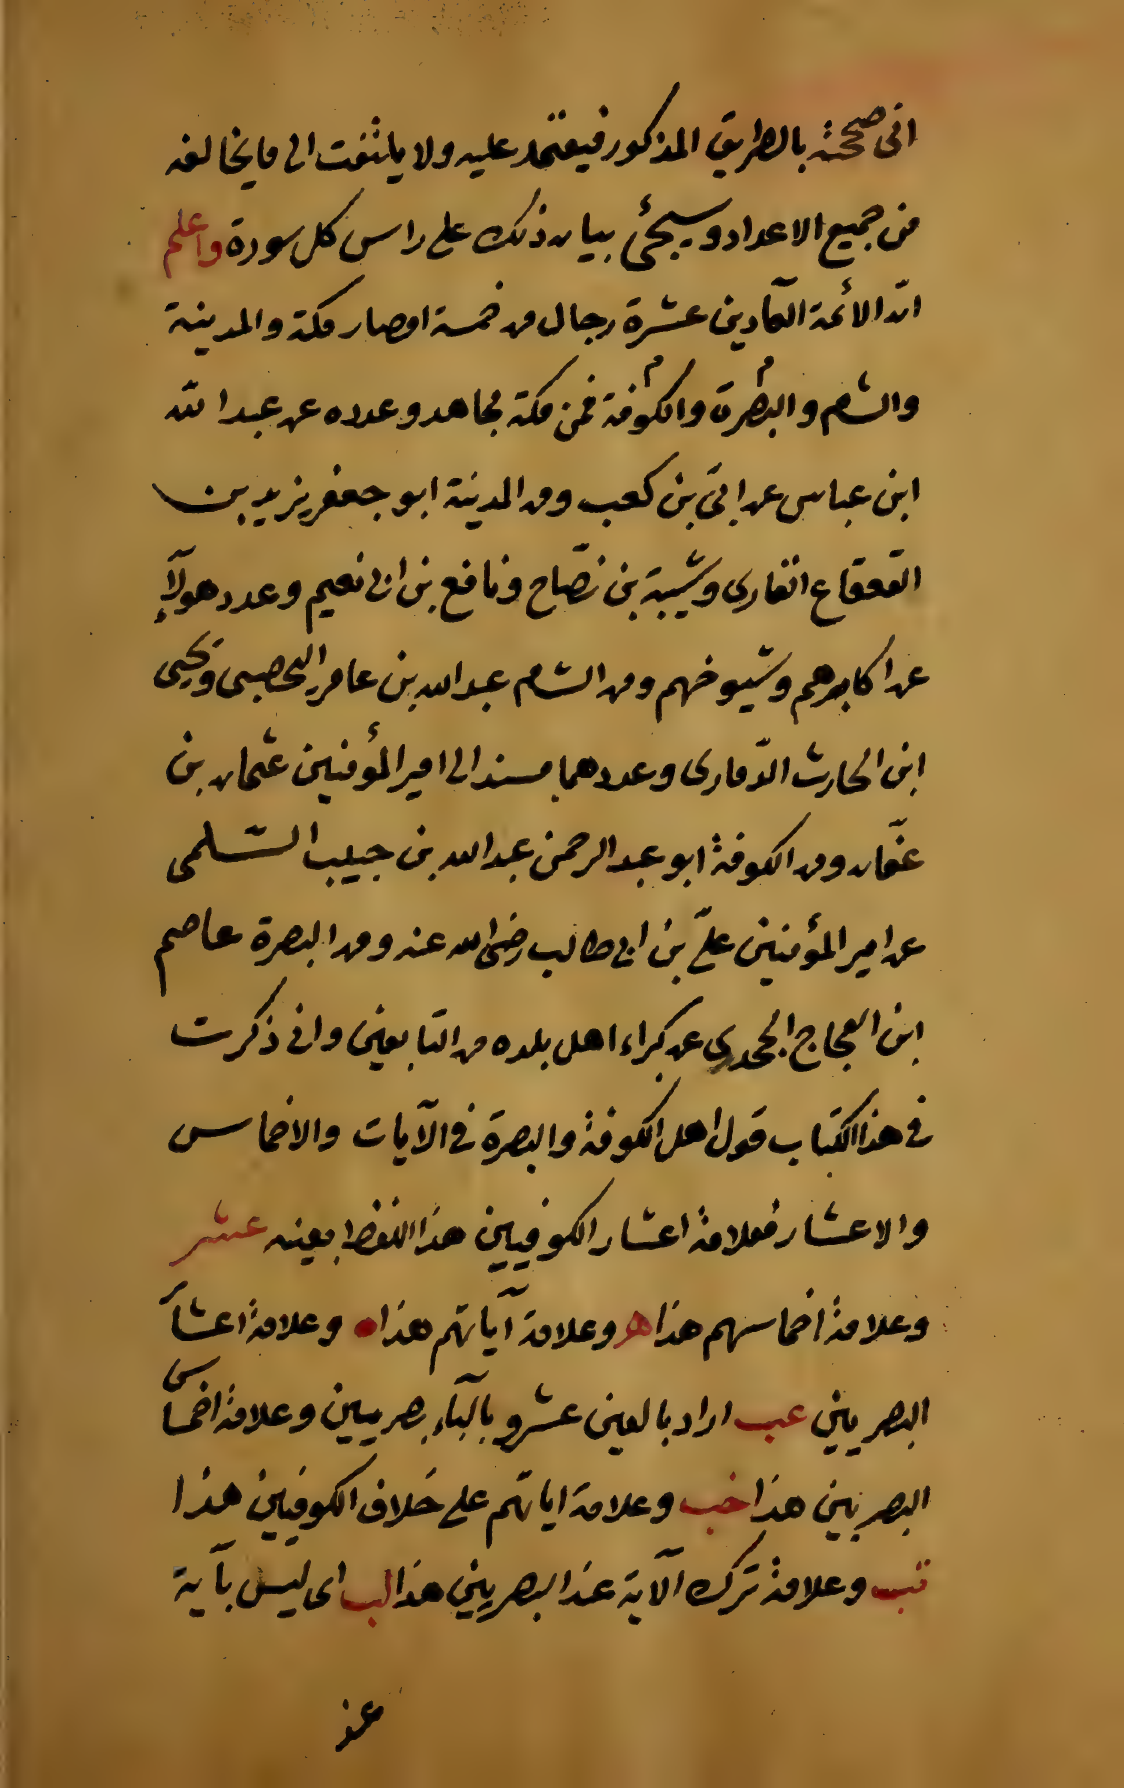 الى صحته بالطريق المذكور فيعتمد عليه ولا يلتفت الى ما يخالفه
من جميع الاعداد وسيجئ بيان ذلك على راس كل سورة واعلم
ان الأئمة العادين عشرة رجال من خمسة امصار مكة والمدينة
والشام والبصرة والكوفة فمن مكة مجاهد وعدده عن عبد الله
ابن عباس عن ابىّ بن كعب ومن المدينة ابو جعفر يزيد بن
القعقاع القارى وشيبة بن نصّاح ونافع بن ابى نعيم وعدد هولآء
عن اكابرهم وشيوخهم ومن الشام عبد الله بن عامر اليحصبى ويحيى
ابن الحارث الذّمارى وعددهما مسند الى امير المؤمنين عثمان بن
عفّان ومن الكوفة ابو عبد الرحمن عبد الله بن حبيب السّلمى
عن امير المؤمنين علىّ بن ابى طالب رضى الله عنه ومن البصرة عاصم
ابن العجاج الجحدرى عن كبراء اهل بلده من التابعين وانى ذكرت
فى هذا الكتاب قول اهل الكوفة والبصرة فى الآيات والاخماس
والاعشار فعلامة اعشار الكوفيين هذا اللفظ بعينه عشر
وعلامة اخماسهم هذا هـ وعلامة آياتهم هذا ● وعلامة اعشار
البصريين عب اراد بالعين عشر وبالبآء بصريين وعلامة اخماس
البصريين هذا خب وعلامة اياتهم على خلاف الكوفيين هذا
تب وعلامة ترك الآية عند البصريين هذا لب اى ليس بآية
عند